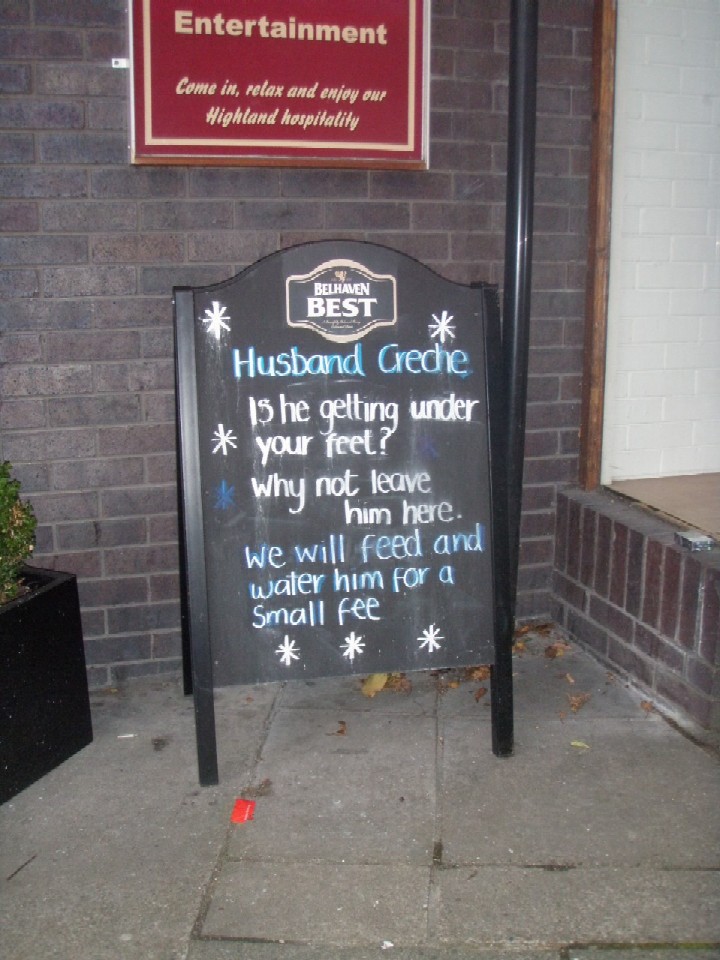 Entertainment
Come in, relax and enjoy our
Highland hospitality
BELHAVEN
BEST
Husband Creche
Is he getting under
your feet?
Why not leave
him here.
We will feed and
water him for a
Small fee